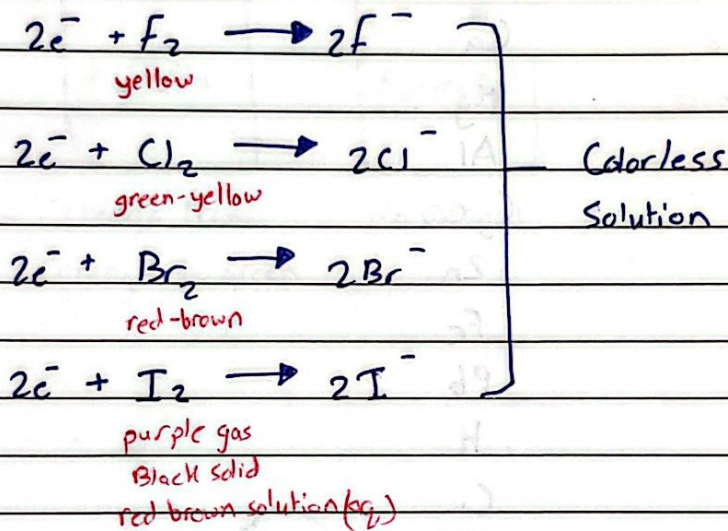 2e⁻ + F₂ → 2F⁻
yellow
2e⁻ + Cl₂ → 2Cl⁻
green-yellow
Colorless
Solution
2e⁻ + Br₂ → 2Br⁻
red-brown
2e⁻ + I₂ → 2I⁻
purple gas
Black solid
red brown solution (aq)